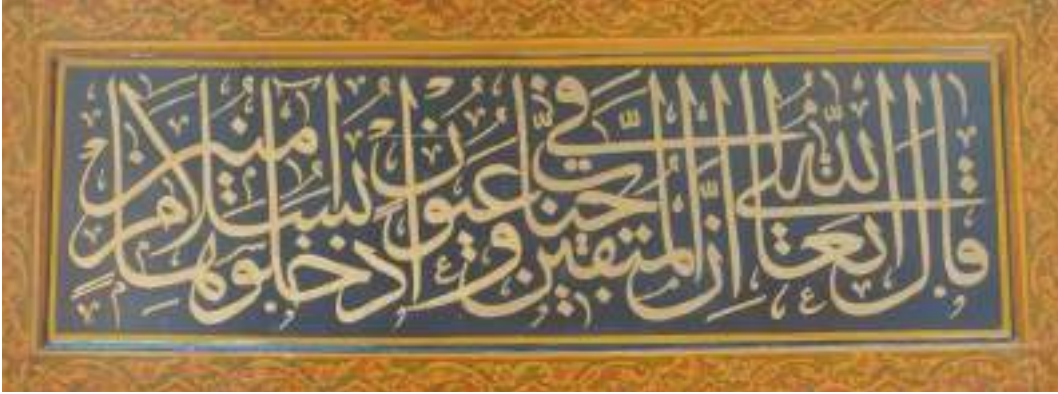 قال الله تعالى إن المتقين في جنات وعيون ادخلوها بسلام آمنين